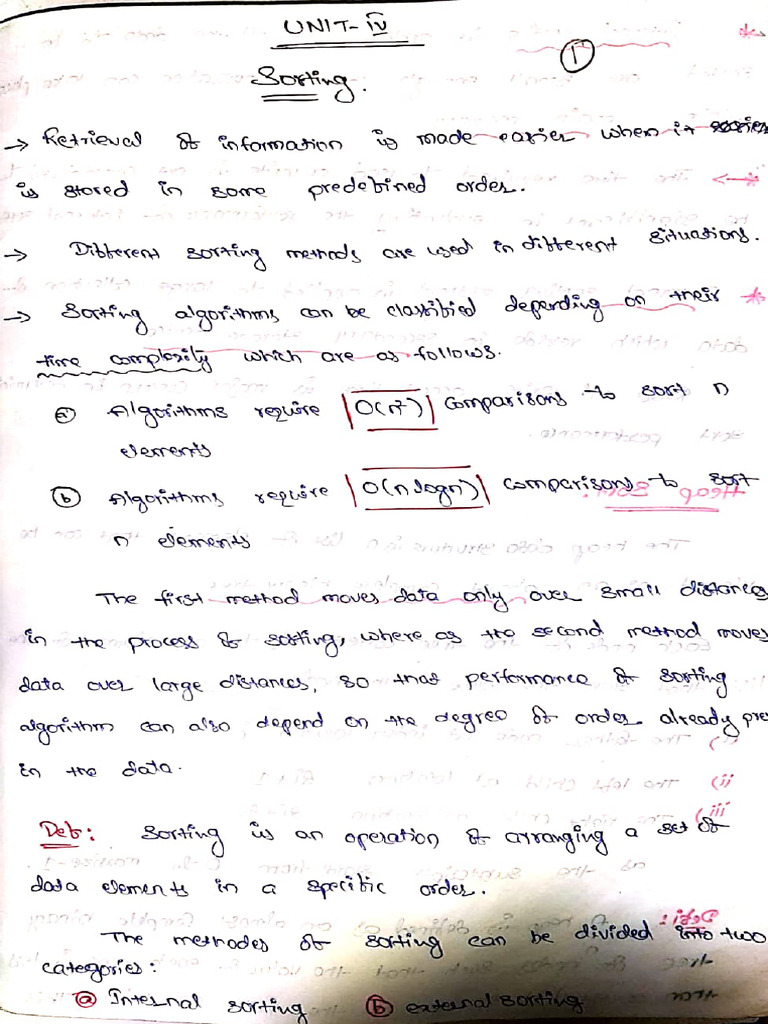 UNIT-IV
1
Sorting.
→ Retrieval of information is made easier when it
is stored in some predefined order.
→ Different sorting methods are used in different situations.
→ Sorting algorithms can be classified depending on their
time complexity which are as follows.
(a) Algorithms require |O(n²)| comparisons to sort n
elements
(b) Algorithms require |O(n logn)| comparisons to sort
n elements
The first method moves data only over small distances
in the process of sorting, where as the second method moves
data over large distances, so that performance of sorting
algorithm can also depend on the degree of order already pre
in the data.
Def: Sorting is an operation of arranging a set of
data elements in a specific order.
The methodes of sorting can be divided into two
categories:
(a) Internal sorting (b) external sorting